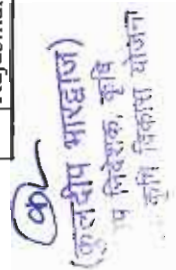 (कुलदीप भारद्वाज)
प निदेशक, कृषि
कृषि विकास योजना